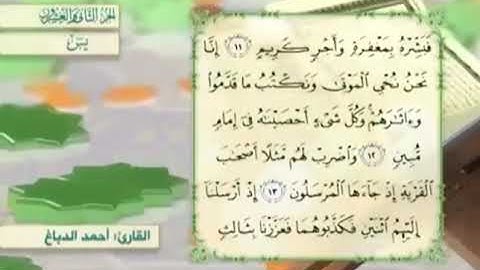 الجزء الثاني والعشرون
يس
فَبَشِّرْهُ بِمَغْفِرَةٍ وَأَجْرٍ كَرِيمٍ ١١ إِنَّا
نَحْنُ نُحْيِ الْمَوْتَىٰ وَنَكْتُبُ مَا قَدَّمُوا
وَءَاثَٰرَهُمْ وَكُلَّ شَيْءٍ أَحْصَيْنَٰهُ فِي إِمَامٍ
مُّبِينٍ ١٢ وَاضْرِبْ لَهُم مَّثَلًا أَصْحَٰبَ
الْقَرْيَةِ إِذْ جَاءَهَا الْمُرْسَلُونَ ١٣ إِذْ أَرْسَلْنَا
إِلَيْهِمُ اثْنَيْنِ فَكَذَّبُوهُمَا فَعَزَّزْنَا بِثَالِثٍ
القارئ: أحمد الدباغ